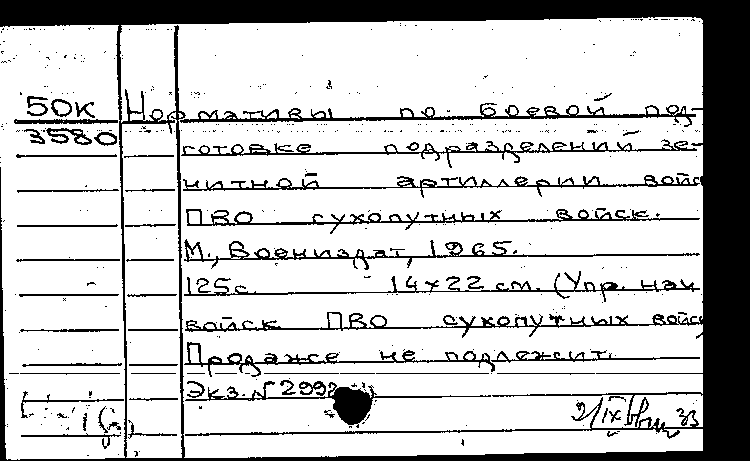 50К Нормативы по боевой под-
3580
готовке подразделений зе-
нитной артиллерии войск
ПВО сухопутных войск.
М., Воениздат, 1965.
125с. 14х22 см. (Упр. нач
войск ПВО сухопутных войск
Продаже не подлежит.
Экз. N 2992
2/IX